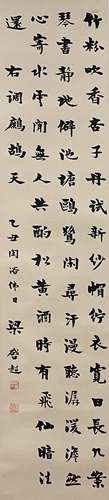 竹粉吹香杏子丹試新紗帽紵衣寬日長几案
琴書靜地僻池塘鷗鷺閒尋汗漫聽潺湲澹然
心寄水雲間無人共酌松黃酒時有飛仙暗往
還 右調鷓鴣天 乙丑閏浴佛日 梁啟超